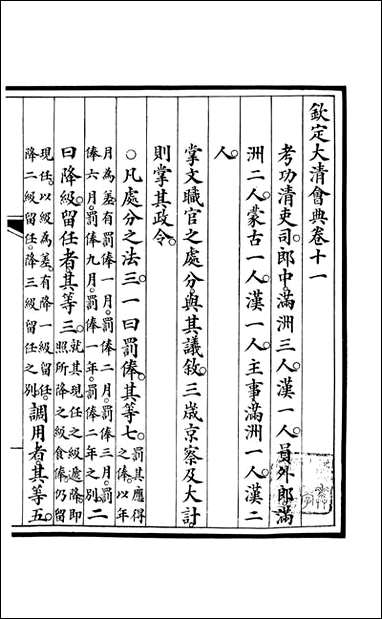 欽定大清會典卷十一
考功清吏司。郎中。滿洲三人。漢一人。員外郎。滿
洲二人。蒙古一人。漢一人。主事。滿洲一人。漢二
人。
掌文職官之處分。與其議敘。三歲京察及大計。
則掌其政令。
○凡處分之法三。一曰罰俸。其等七。罰其應得之俸。以年
月為差。有罰俸一月。罰俸二月。罰俸三月。罰俸六月。罰俸九月。罰俸一年。罰俸二年之別。二
曰降級。留任者其等三。就其現任之級遞降。即照所降之級食俸。仍留
現任。以級為差。有降一級留任。降二級留任。降三級留任之別。調用者其等五。